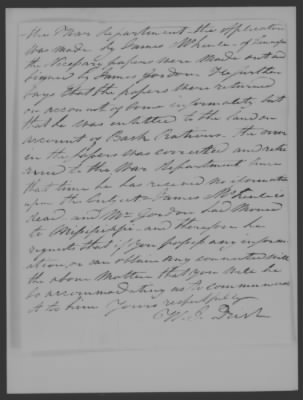 the War Department the application
was made by James Wheeler of
the Necessary papers were made out and
signed by James Gordon He further
Says that the papers were returned
on account of some informality but
that he was entitled to the land on
account of Back Rations. The error
in the papers was corrected and retur
ned to the War Department Since
that time he has received no information
upon the Subject James is
dead and Mr Gordon had Moved
to Mississippi and therefore he
requests that if you possess any inform
ation or can obtain any connected with
the above Matter that you will be
So accommodating as to communicate
it to him Yours respectfully
W. S.